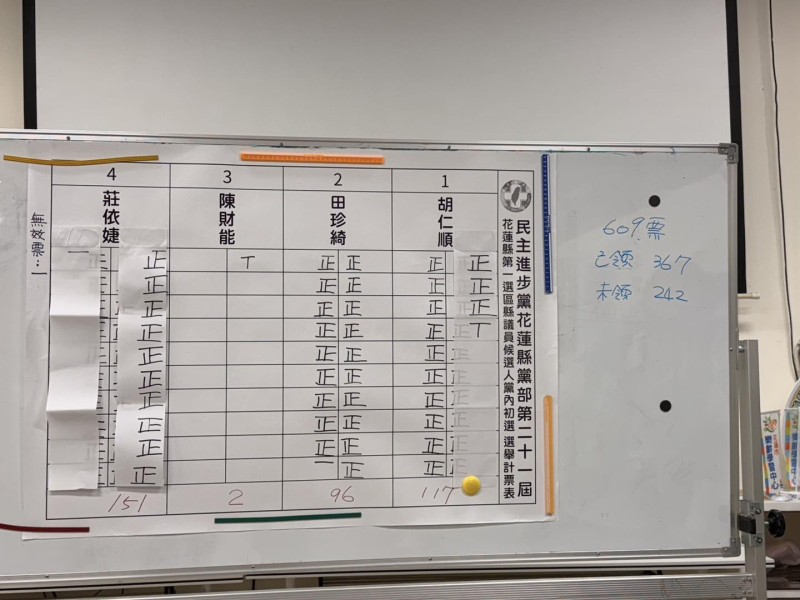 民主進步黨花蓮縣黨部第二十一屆
花蓮縣第一選區縣議員候選人黨內初選 選舉計票表
1
胡仁順
正正
正正
正正
正丅
正
正
正
正
正
正
117
2
田珍綺
正正
正正
正正
正正
正正
正正
正正
正正
正正
一正
96
3
陳財能
丅
2
4
莊依婕
正
正
正
正
正
正
正
正
正
正
一
151
無效票：一
609票
已領 367
未領 242